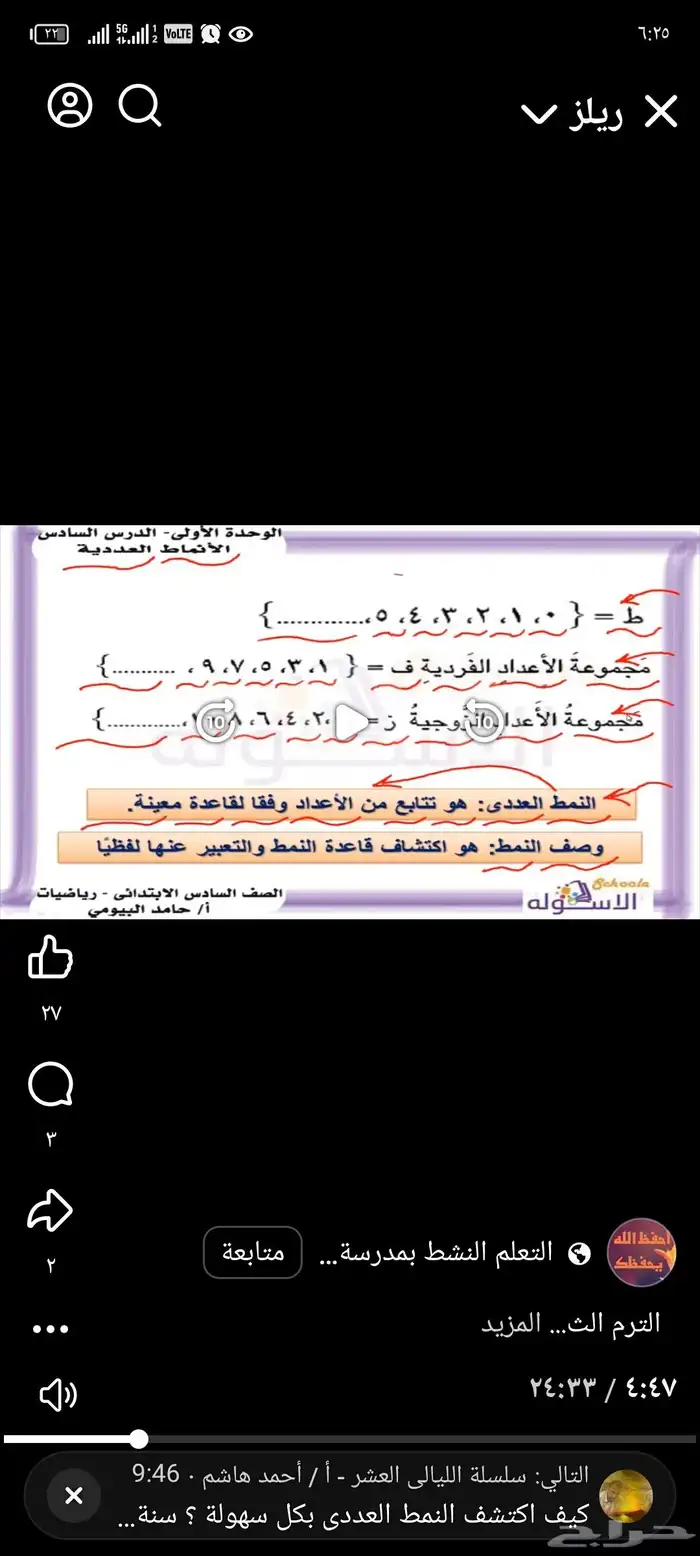 ٢٢ 5G 1 2 VoLTE ٦:٢٥
ريلز
الوحدة الأولى- الدرس السادس
الأنماط العددية
ط = { ٠، ١، ٢، ٣، ٤، ٥،.............}
مجموعةَ الأعدادِ الفَرديةِ ف = { ١، ٣، ٥، ٧، ٩، ..........}
مَجموعةُ الأَعدادِ الزوجيةُ ز = ٢، ٤، ٦، ٨، ............}
10 10
النمط العددى: هو تتابع من الأعداد وفقا لقاعدة معينة.
وصف النمط: هو اكتشاف قاعدة النمط والتعبير عنها لفظيًا
الصف السادس الابتدائى - رياضيات
أ/ حامد البيومي
Schoola
الاسكوله
٢٧
٣
٢
احفظ الله
يحفظك
التعلم النشط بمدرسة...
متابعة
الترم الث... المزيد
٤:٤٧ / ٢٤:٣٣
التالي: سلسلة الليالى العشر - أ / أحمد هاشم · 9:46
كيف اكتشف النمط العددى بكل سهولة ؟ سنة...
حراج